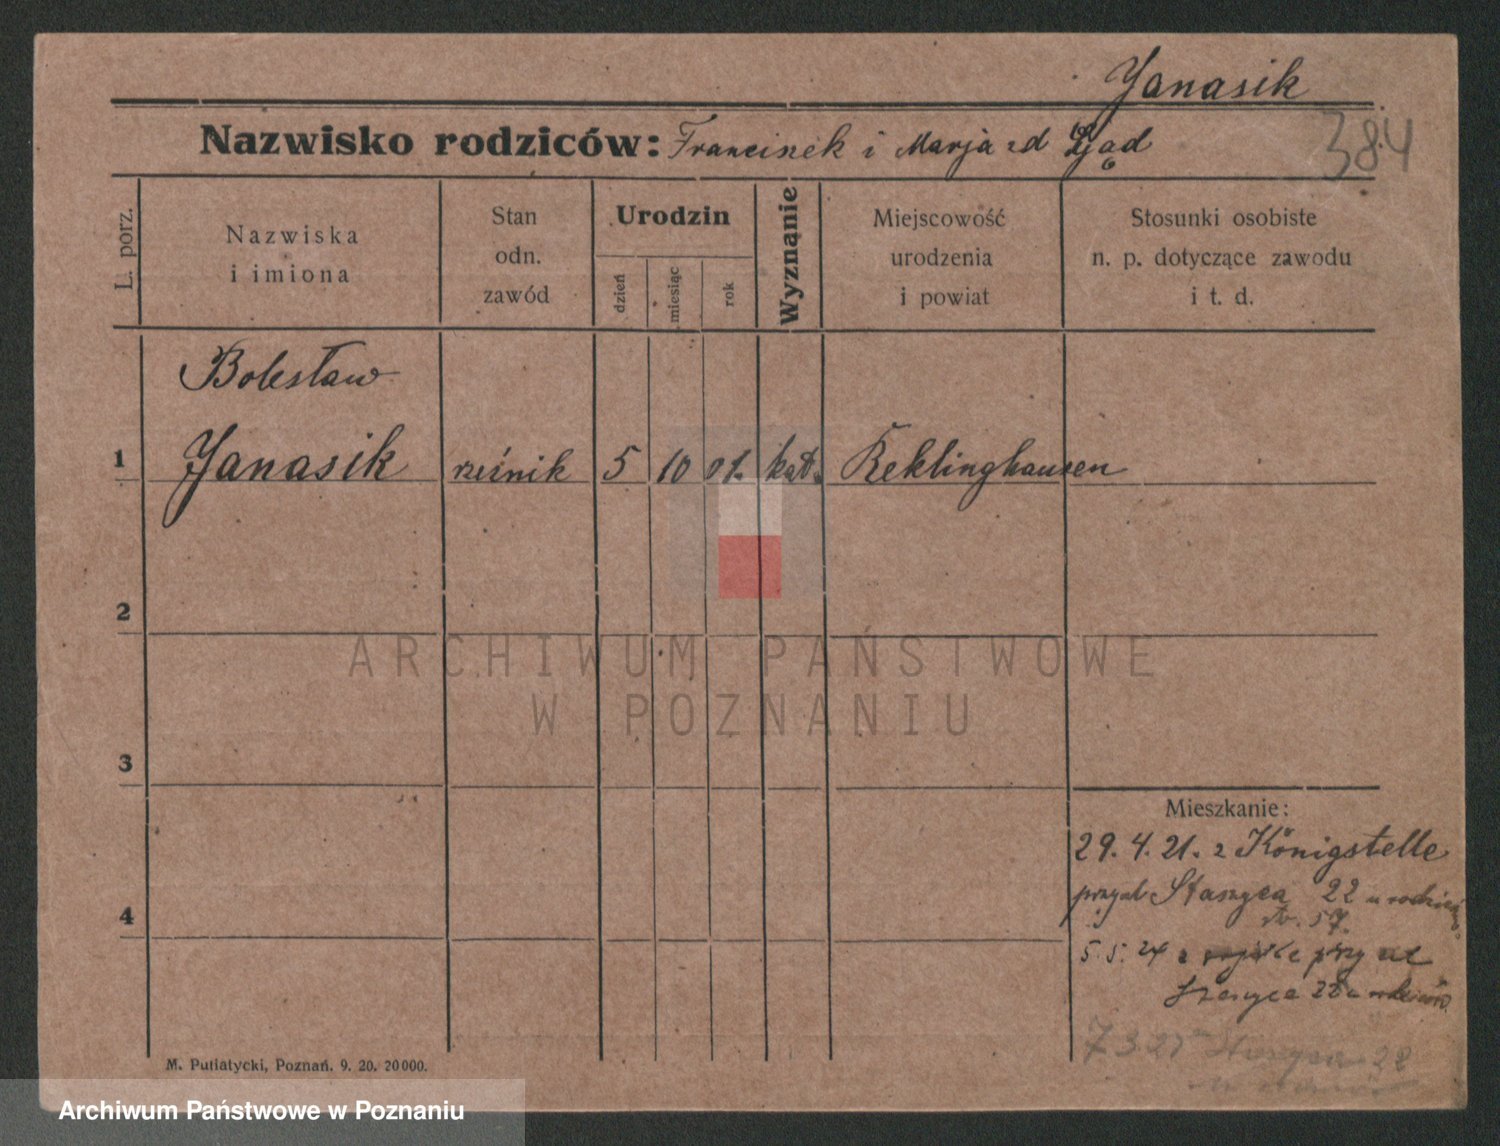 Yanasik
Nazwisko rodziców: Franciszek i Marja
384
L. porz.
Nazwiska
i imiona
Stan
odn.
zawód
Urodzin
dzień
miesiąc
rok
Wyznanie
Miejscowość
urodzenia
i powiat
Stosunki osobiste
n. p. dotyczące zawodu
i t. d.
Bolesław
1 Yanasik rzeźnik 5 10 01. kat. Reklinghausen
2
3
4
ARCHIWUM PAŃSTWOWE
W POZNANIU
Mieszkanie:
29. 4. 21. z Königstelle
przyb Staszyca 22 u
57.
5. 5. 24 z przy ul
22 u
7 3 27 22
M. Putiatycki, Poznań. 9. 20. 20000.
Archiwum Państwowe w Poznaniu